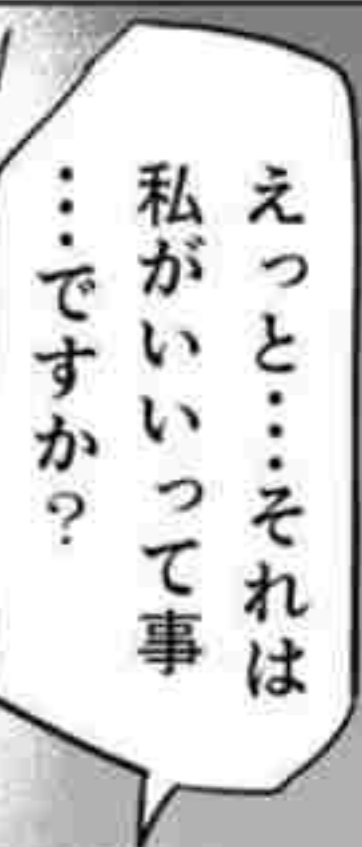 えっと…それは
私がいいって事
…ですか？